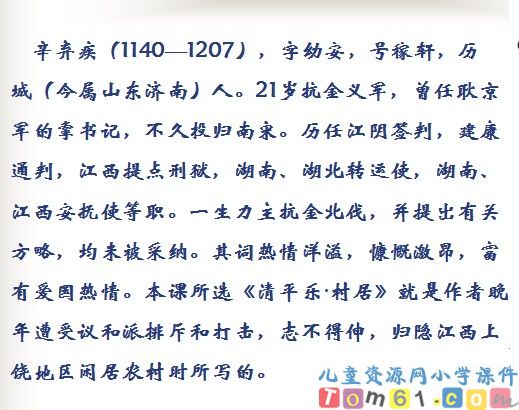 辛弃疾（1140—1207），字幼安，号稼轩，历
城（今属山东济南）人。21岁抗金义军，曾任耿京
军的掌书记，不久投归南宋。历任江阴签判，建康
通判，江西提点刑狱，湖南、湖北转运使，湖南、
江西安抚使等职。一生力主抗金北伐，并提出有关
方略，均未被采纳。其词热情洋溢，慷慨激昂，富
有爱国热情。本课所选《清平乐·村居》就是作者晚
年遭受议和派排斥和打击，志不得伸，归隐江西上
饶地区闲居农村时所写的。
儿童资源网小学课件
Tom61.com